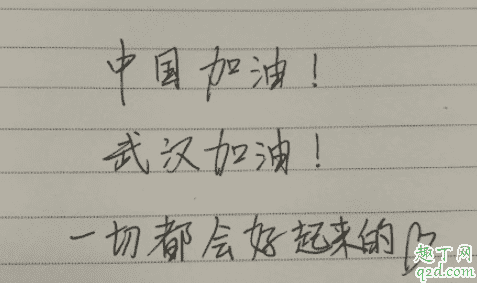 中国加油!
武汉加油!
一切都会好起来的
趣丁网
q2d.com